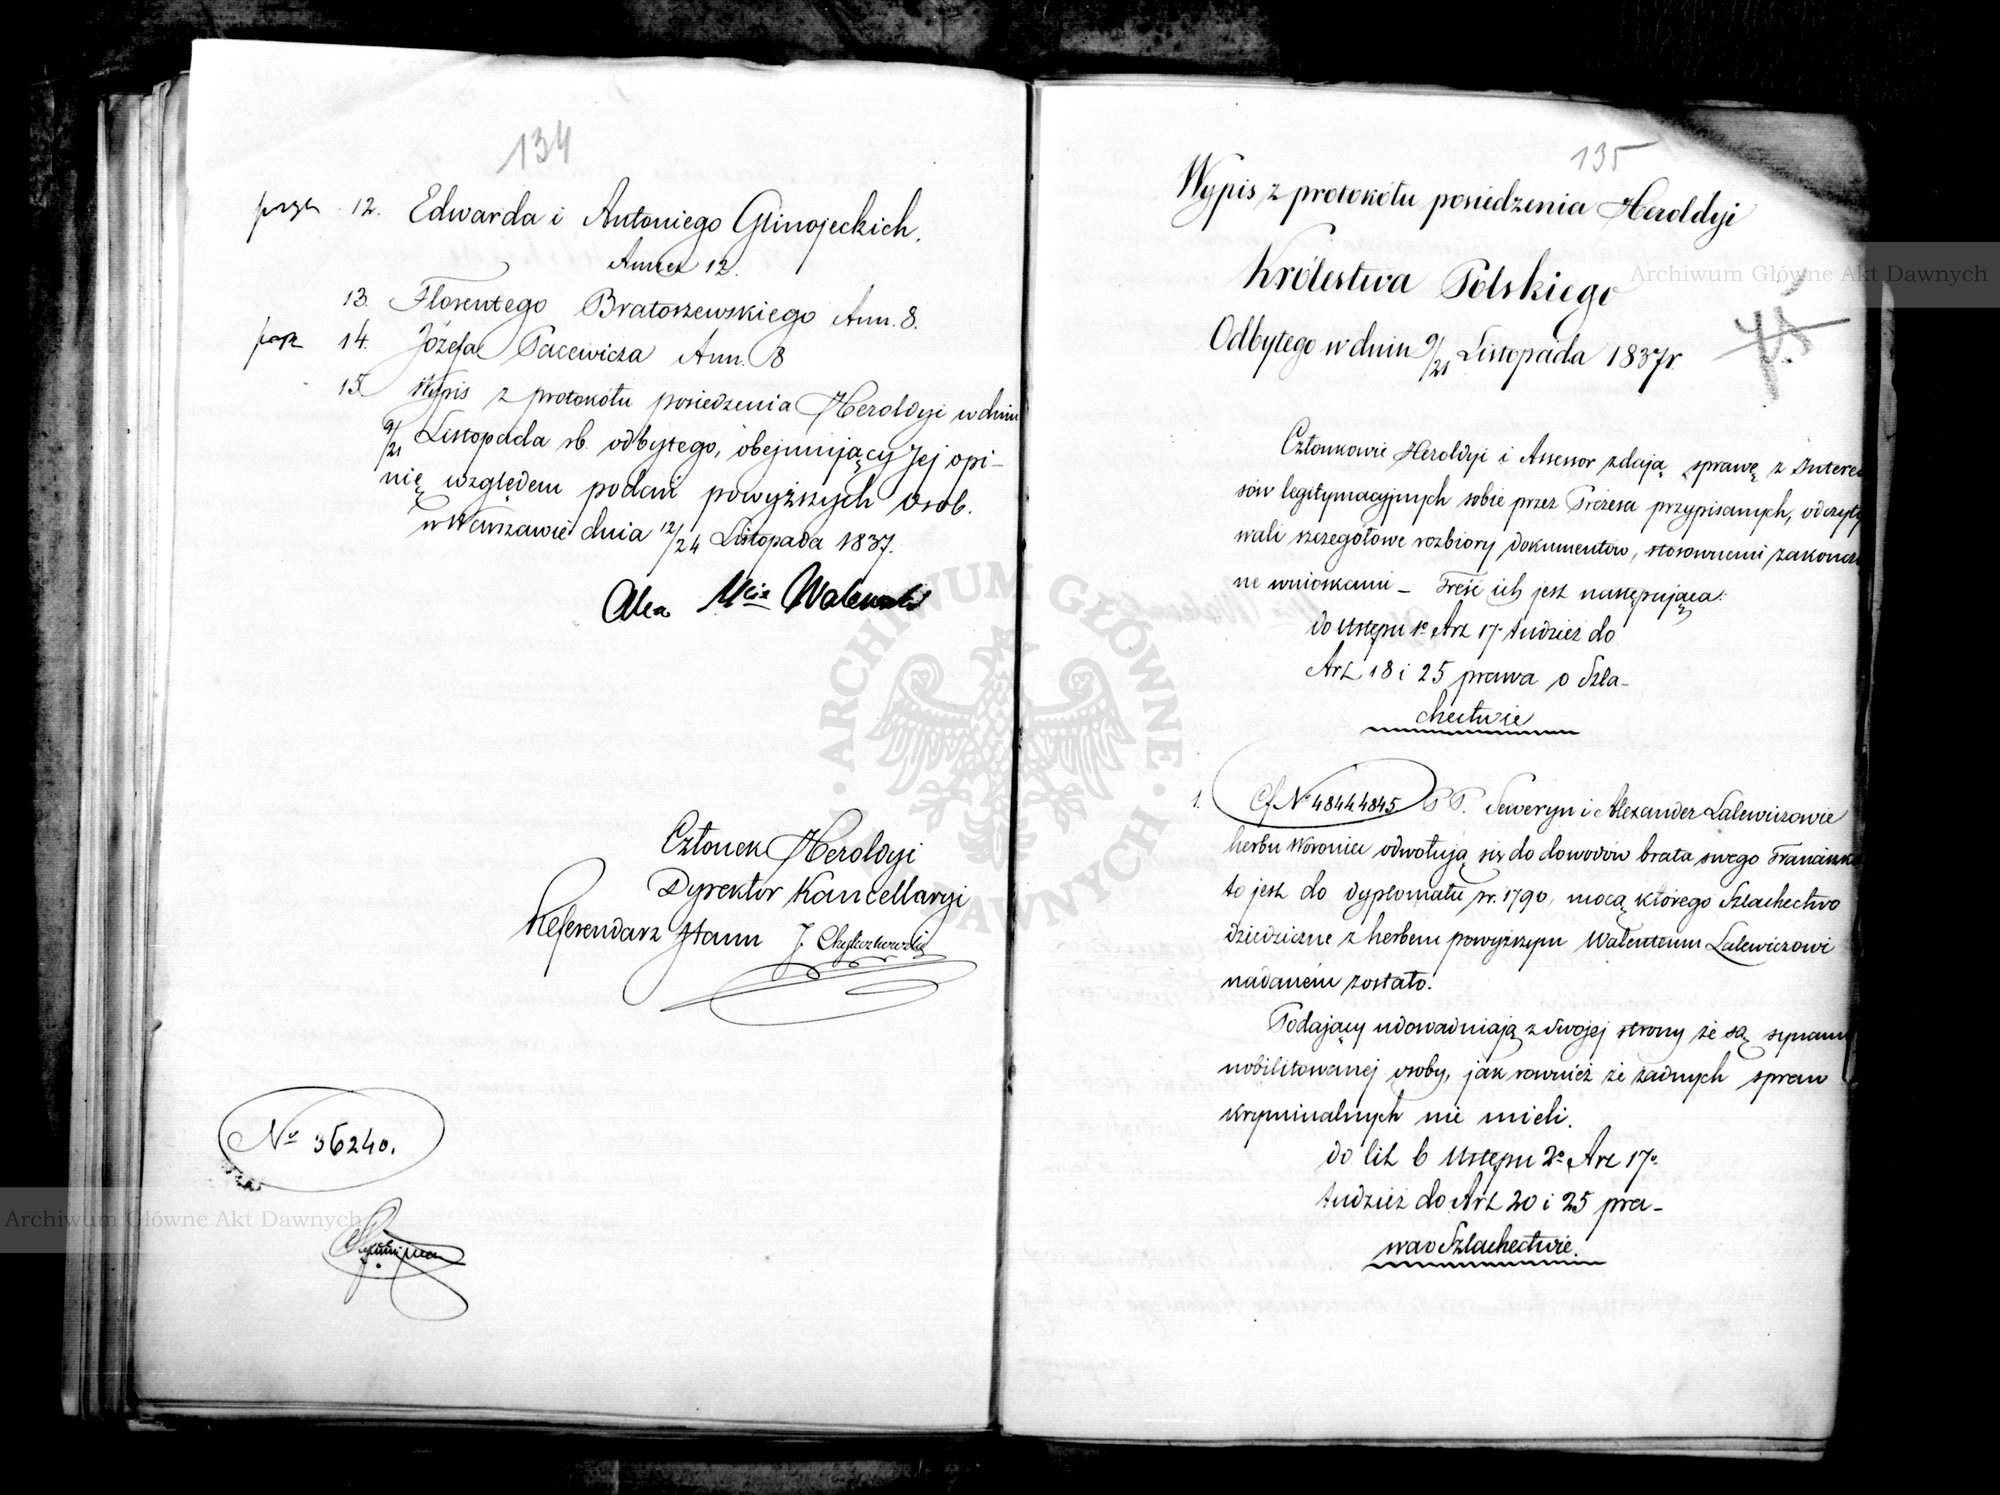 134
przyt 12. Edwarda i Antoniego Glinojeckich.
Annex 12.
13. Florentego Bratoszewskiego Ann. 8.
14. Józefa Pacewicza Ann. 8
15. Wypis z protokółu posiedzenia Heroldyi w dniu
9/21 Listopada rb. odbytego, obejmujący Jej opi-
nię względem podań powyższych osob.
w Warszawie dnia 12/24 Listopada 1837.
Alex Walewski
Członek Heroldyi
Dyrektor Kancellaryi
Referendarz Stanu J.
No 36240.
135
Wypis z protokółu posiedzenia Heroldyi
Królestwa Polskiego
Odbytego w dniu 9/21 Listopada 1837r.
Członkowie Heroldyi i Assessor zdają sprawę z Interes
sów legitymacyjnych sobie przez Prezesa przypisanych, odczyty
wali szczegółowe rozbiory dokumentów, stosownemi zakończo
ne wnioskami – Treść ich jest następująca:
do Ustępu 1o Art 17. tudzież do
Art 18 i 25 prawa o Szla-
chectwie
1. Cf No 4844 4845 P P. Seweryn i Alexander Lalewiczowie
herbu Woronicz odwołują się do dowodów brata swego Franciszka
to jest do dyplomatu r. 1790, mocą którego Szlachectwo
dziedziczne z herbem powyższym Walentemu Lalewiczowi
nadanem zostało.
Podający udowadniają z swojej strony że są synami
nobilitowanej osoby, jak rownież że żadnych spraw
kryminalnych nie mieli.
do lit b Ustępu 2o Art 17o
tudzież do Art 20 i 25 pra-
wa o Szlachectwie.
ARCHIWUM GŁÓWNE AKT DAWNYCH
Archiwum Główne Akt Dawnych
Archiwum Główne Akt Dawnych